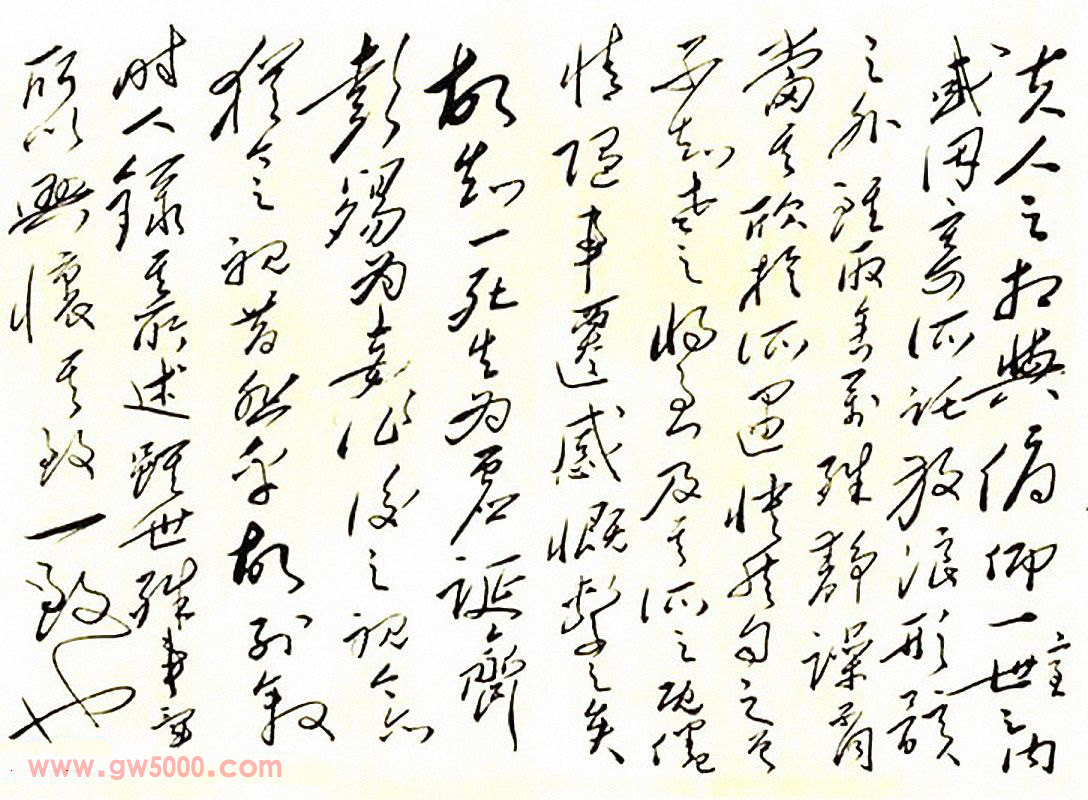 夫人之相與俯仰一世之內
室
或因寄所託放浪形骸
之外雖取舍萬殊靜躁不同
當其欣於所遇快然自足
不知老之將至及其所之既倦
情隨事遷感慨係之矣
故知一死生為虛誕齊
彭殤為妄作後之視今亦
猶今之視昔悲乎故列敘
時人錄其所述雖世殊事異
所以興懷其致一致也
www.gw5000.com